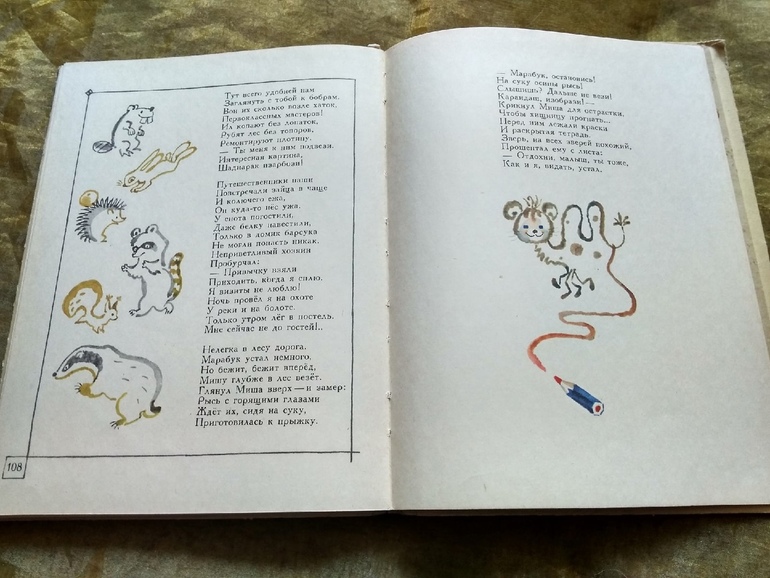 Тут всего удобней нам
Заглянуть с тобой к бобрам.
Вон их сколько возле хаток,
Первоклассных мастеров!
Ил копают без лопаток,
Рубят лес без топоров,
Ремонтируют плотину.
— Ты меня к ним подвези.
Интересная картина,
Шаднарак иварбози!
Путешественники наши
Повстречали зайца в чаще
И колючего ежа,
Он куда-то нёс ужа.
У енота погостили,
Даже белку навестили,
Только в домик барсука
Не могли попасть никак.
Неприветливый хозяин
Пробурчал:
— Привычку взяли
Приходить, когда я сплю.
Я визиты не люблю!
Ночь провёл я на охоте
У реки и на болоте.
Только утром лёг в постель.
Мне сейчас не до гостей!..
Нелегка в лесу дорога.
Марабук устал немного.
Но бежит, бежит вперёд,
Мишу глубже в лес везёт.
Глянул Миша вверх — и замер:
Рысь с горящими глазами
Ждёт их, сидя на суку,
Приготовилась к прыжку.
108
— Марабук, остановись!
На суку осины рысь!
Слышишь? Дальше не вези!
Карандаш, изобрази! —
Крикнул Миша для острастки,
Чтобы хищницу прогнать...
Перед ним лежали краски
И раскрытая тетрадь.
Зверь, на всех зверей похожий,
Прошептал ему с листа:
— Отдохни, малыш, ты тоже,
Как и я, видать, устал.